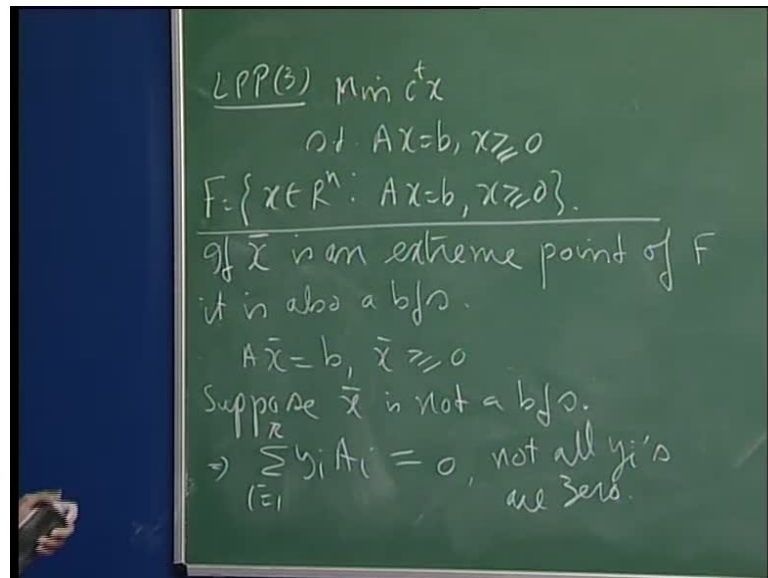 LPP(3) Min cᵗx
s.t. Ax=b, x≥0
F={x∈Rⁿ: Ax=b, x≥0}.
If x̄ is an extreme point of F
it is also a bfs.
Ax̄=b, x̄≥0
Suppose x̄ is not a bfs.
⇒ ∑ᵢ₌₁ᴿ yᵢAᵢ = 0, not all yᵢ's
are zero.